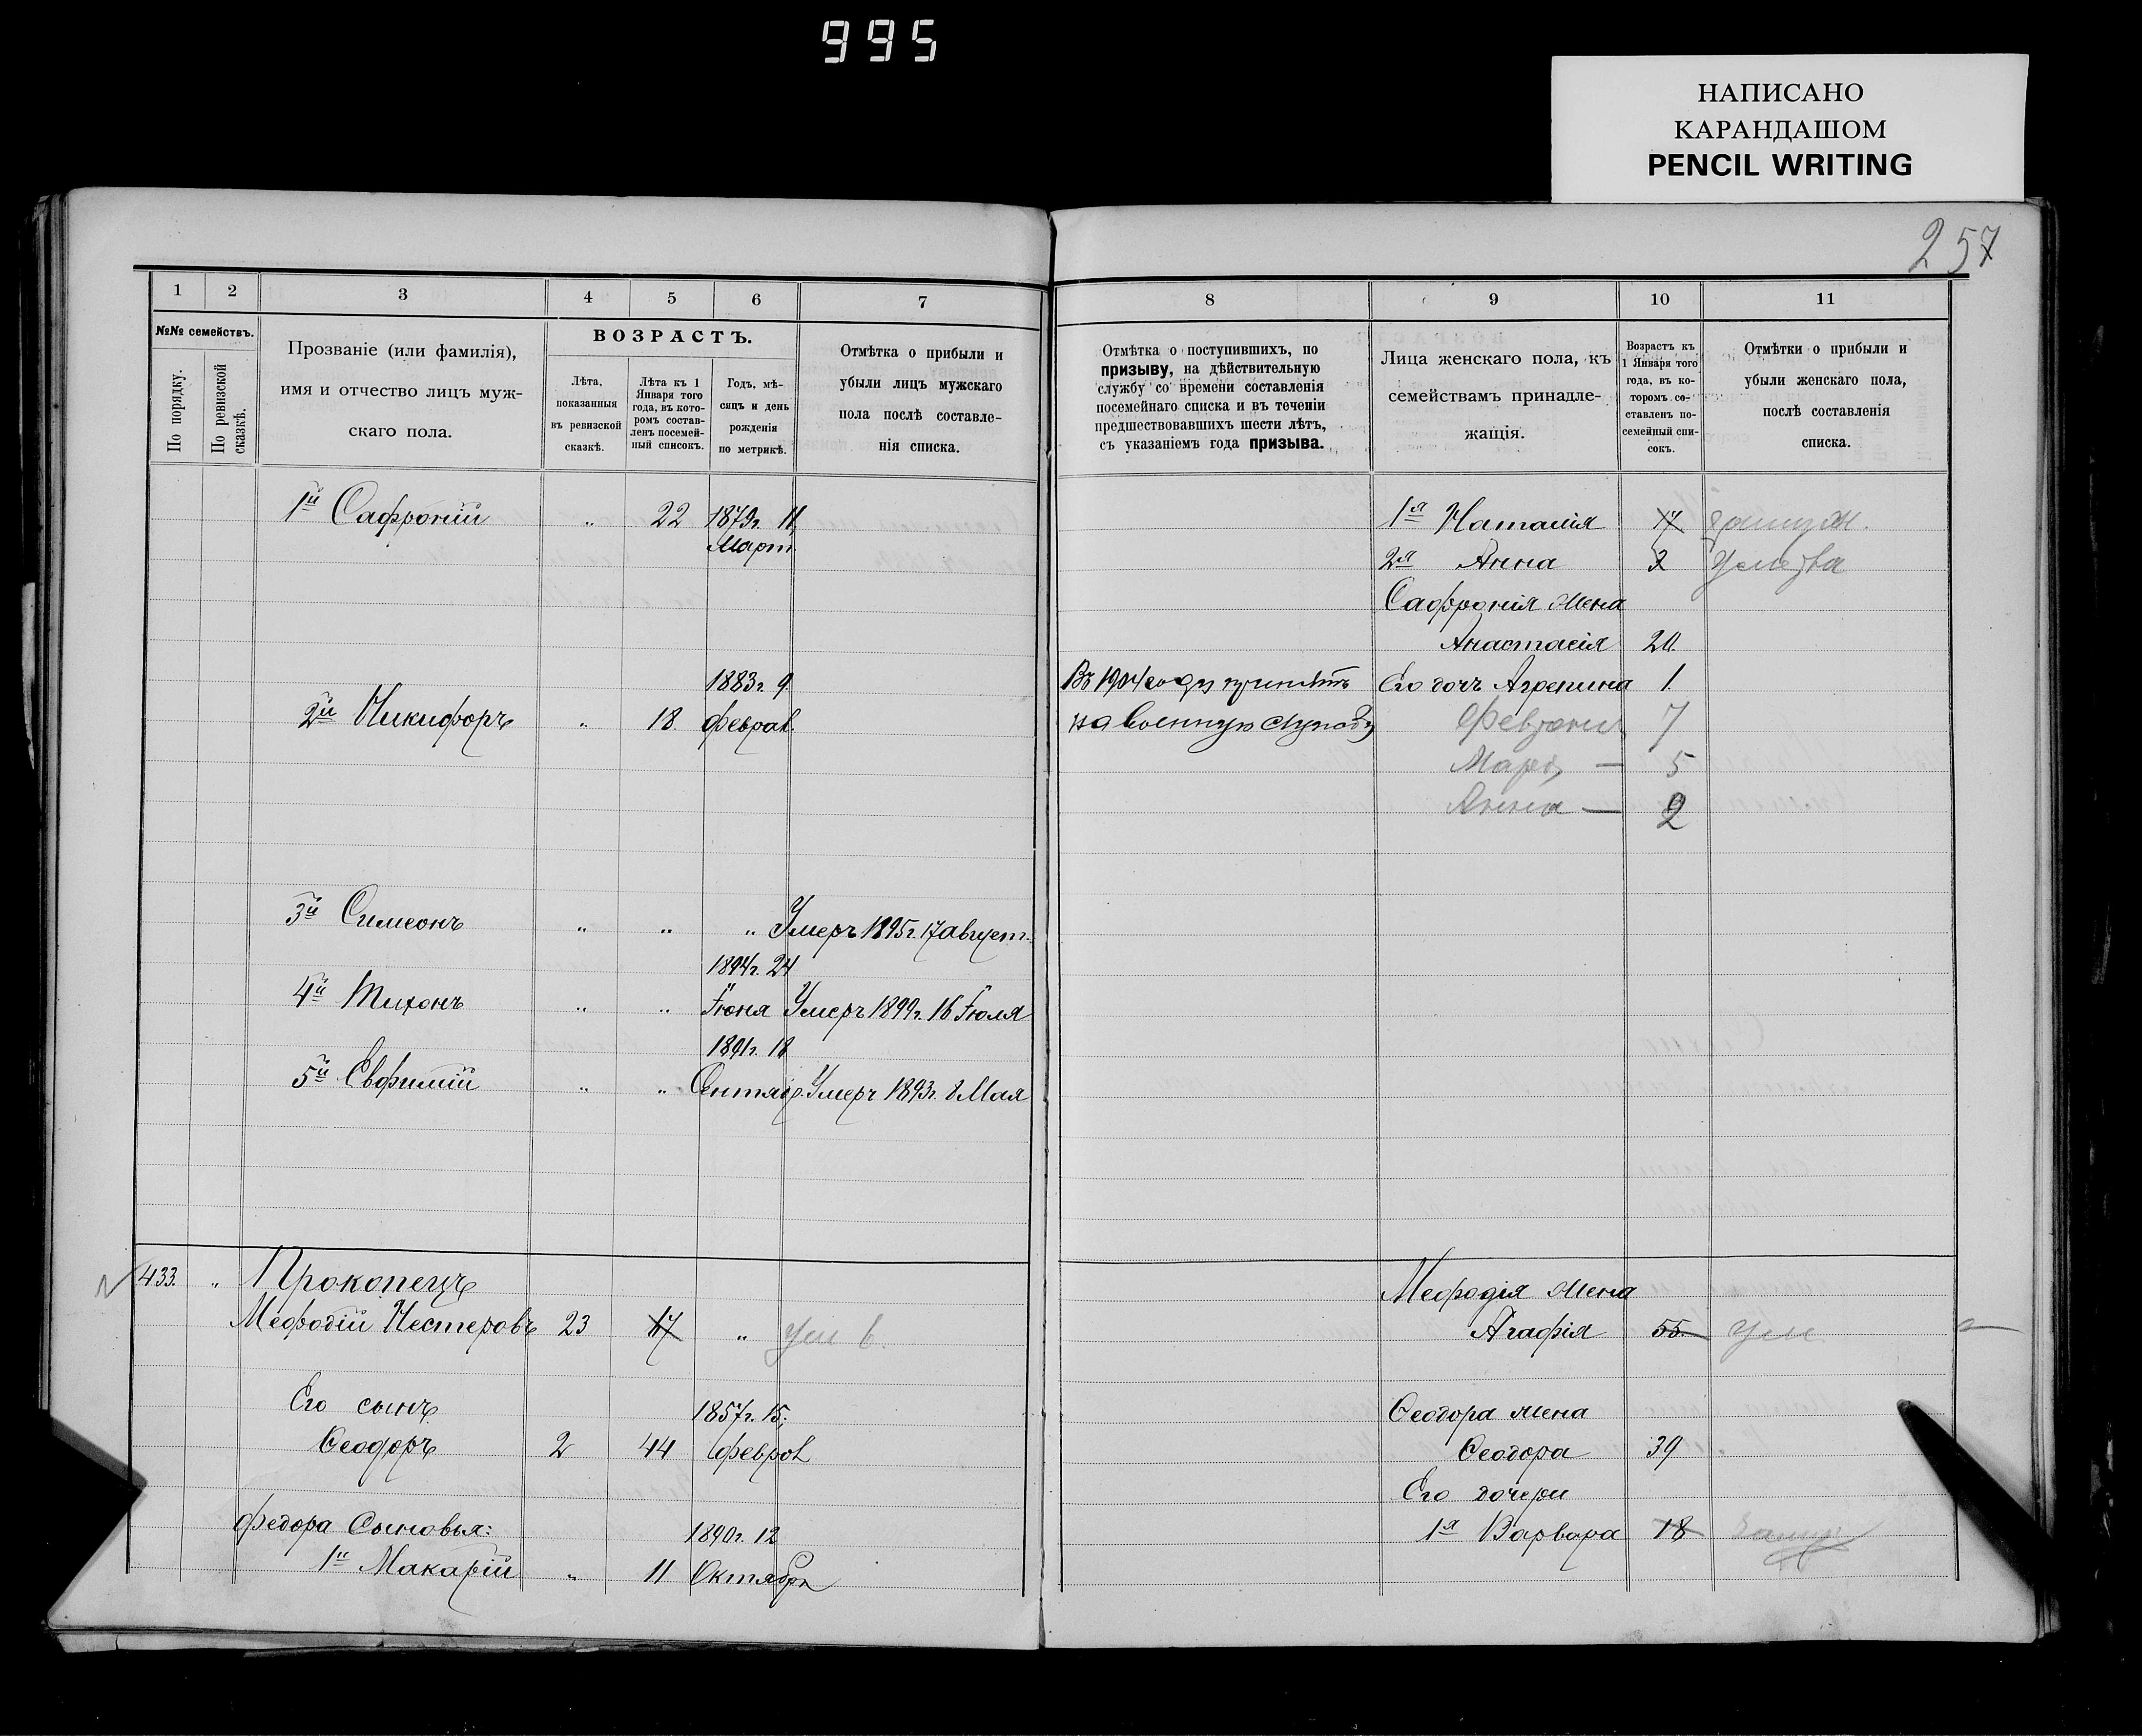 995
НАПИСАНО
КАРАНДАШОМ
PENCIL WRITING
257
1 2 3 4 5 6 7
№№ семействъ.
По порядку.
По ревизской сказкѣ.
Прозваніе (или фамилія),
имя и отчество лицъ муж-
скаго пола.
ВОЗРАСТЪ.
Лѣта,
показанныя
въ ревизской
сказкѣ.
Лѣта къ 1
Января того
года, въ кото-
ромъ состав-
ленъ посемей-
ный списокъ.
Годъ, мѣ-
сяцъ и день
рожденія
по метрикѣ.
Отмѣтка о прибыли и
убыли лицъ мужскаго
пола послѣ составле-
нія списка.
1й Сафроній „ 22 1879г. 11
Март.
1883г. 9.
2й Никифоръ „ 18. феврал.
3й Симеонъ „ „ „ Умеръ 1895г. 17 август.
1894г. 24
4й Тихонъ „ „ Іюня Умеръ 1899г. 16 Іюля
1891г. 18
5й Евфимій „ „ Сентябр. Умеръ 1893г. 8 Мая
433. „ Прокопецъ
Мефодій Нестеровъ 23 „ Ум
Его сынъ 1857г. 15.
Ѳеодоръ 2 44 феврал
Федора Сыновья: 1890г. 12
1й Макарій „ 11 Октября
8 9 10 11
Отмѣтка о поступившихъ, по
призыву, на дѣйствительную
службу со времени составленія
посемейнаго списка и въ теченіи
предшествовавшихъ шести лѣтъ,
съ указаніемъ года призыва.
Лица женскаго пола, къ
семействамъ принадле-
жащія.
Возрастъ къ
1 Января того
года, въ ко-
торомъ со-
ставленъ по-
семейный спи-
сокъ.
Отмѣтки о прибыли и
убыли женскаго пола,
послѣ составленія
списка.
1я Наталія 17 замуж.
2я Анна 3
Сафронія жена
Анастасія 20.
Въ 1904 году принятъ Его дочь Агрепина 1.
на военную службу 7
5
Анна — 2
Мефодія жена
Агафія 55. Ум
Ѳеодора жена
Ѳеодора 39
Его дочери
1я Варвара 18 замуж